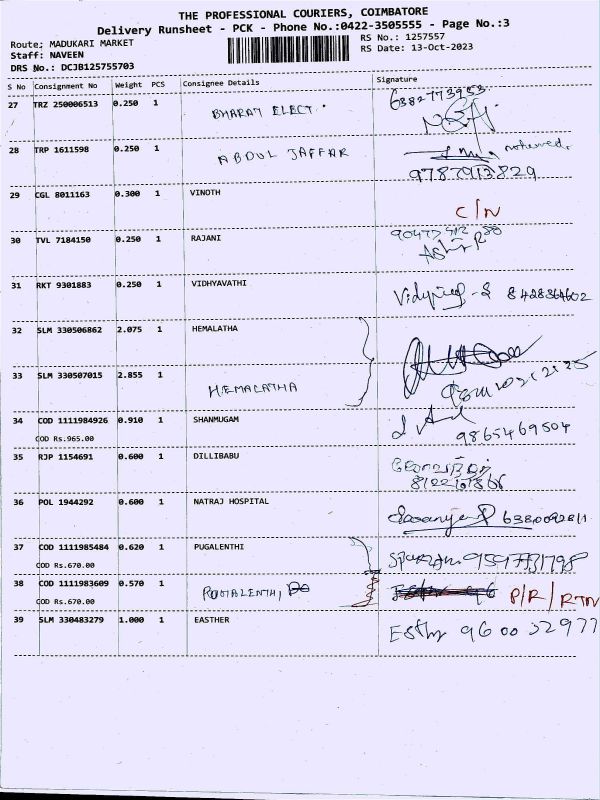 THE PROFESSIONAL COURIERS, COIMBATORE
Delivery Runsheet - PCK - Phone No.:0422-3505555 - Page No.:3
Route; MADUKARI MARKET RS No.: 1257557
Staff: NAVEEN RS Date: 13-Oct-2023
DRS No.: DCJB125755703
S No Consignment No Weight PCS Consignee Details Signature
27 TRZ 250006513 0.250 1 BHARAT ELECT. 6382773953
28 TRP 1611598 0.250 1 ABDUL JAFFAR
9787913829
29 CGL 8011163 0.300 1 VINOTH
C/N
30 TVL 7184150 0.250 1 RAJANI
31 RKT 9301883 0.250 1 VIDHYAVATHI
8428364602
32 SLM 330506862 2.075 1 HEMALATHA
33 SLM 330507015 2.855 1 HEMALATHA
34 COD 1111984926 0.910 1 SHANMUGAM
COD Rs.965.00 9865469504
35 RJP 1154691 0.600 1 DILLIBABU
36 POL 1944292 0.600 1 NATRAJ HOSPITAL
37 COD 1111985484 0.620 1 PUGALENTHI
COD Rs.670.00
38 COD 1111983609 0.570 1 P/R/RTN
COD Rs.670.00
39 SLM 330483279 1.000 1 EASTHER